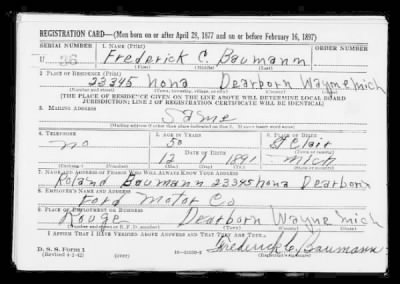 REGISTRATION CARD—(Men born on or after April 28, 1877 and on or before February 16, 1897)
SERIAL NUMBER 1. NAME (Print) ORDER NUMBER
U 36 Frederick C. Baumann
(First) (Middle) (Last)
2. PLACE OF RESIDENCE (Print)
23345 nona Dearborn Wayne mich
(Number and street) (Town, township, village, or city) (County) (State)
[THE PLACE OF RESIDENCE GIVEN ON THE LINE ABOVE WILL DETERMINE LOCAL BOARD
JURISDICTION; LINE 2 OF REGISTRATION CERTIFICATE WILL BE IDENTICAL]
3. MAILING ADDRESS
Same
(Mailing address if other than place indicated on line 2. If same insert word same)
4. TELEPHONE 5. AGE IN YEARS 6. PLACE OF BIRTH
no 50 St Clair
DATE OF BIRTH (Town or county)
12 1891 mich
(Mo.) (Day) (Yr.) (State or country)
7. NAME AND ADDRESS OF PERSON WHO WILL ALWAYS KNOW YOUR ADDRESS
Roland Baumann 23345 nona Dearborn
8. EMPLOYER'S NAME AND ADDRESS
Ford Motor Co
9. PLACE OF EMPLOYMENT OR BUSINESS
Rouge Dearborn Wayne mich
(Number and street or R. F. D. number) (Town) (County) (State)
I AFFIRM THAT I HAVE VERIFIED ABOVE ANSWERS AND THAT THEY ARE TRUE.
D. S. S. Form 1
(Revised 4-1-42) (over) Frederick C. Baumann